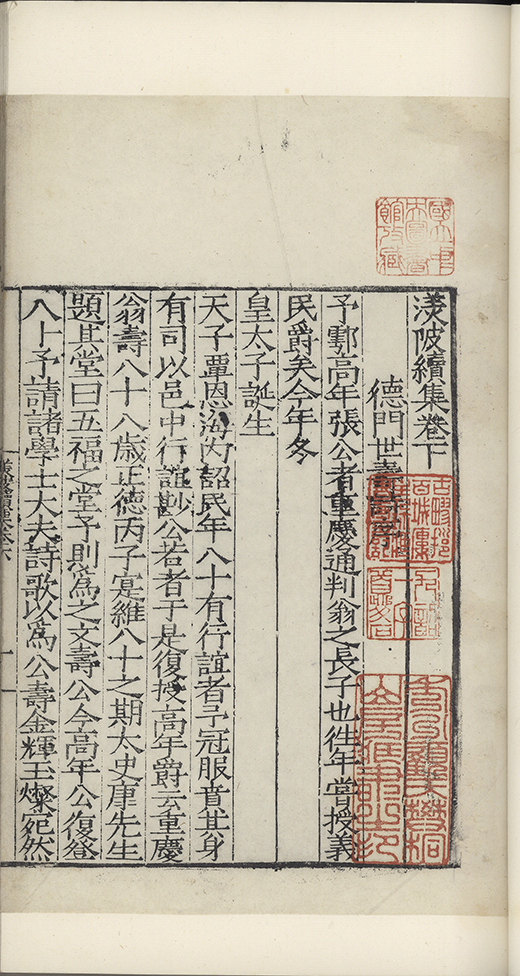 渼陂續集卷下
德門世壽詩序
予鄠高年張公者重慶通判翁之長子也徃年嘗授義
民爵矣今年冬
皇太子誕生
天子覃恩海內詔民年八十有行誼者予冠服賁其身
有司以邑中行誼尠公若者于是復授高年爵云重慶
翁壽八十八歲正德丙子寔維八十之期太史康先生
題其堂曰五福之堂予則爲之文壽公今高年公復登
八十予請諸學士大夫詩歌以爲公壽金輝玉燦宛然
國立中央圖書館收藏